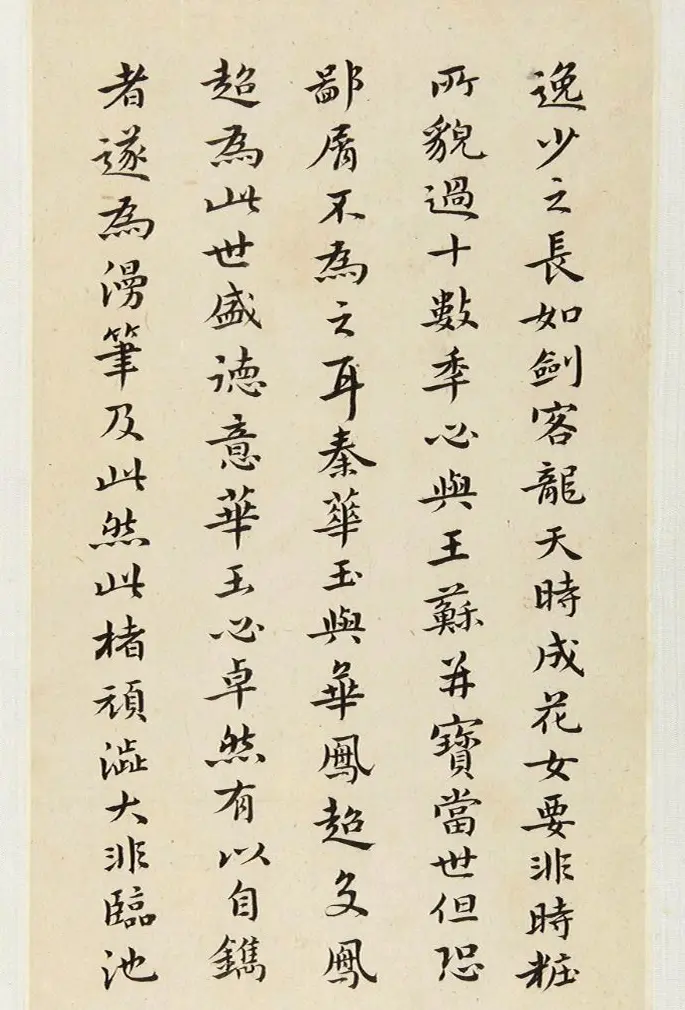 逸少之長如劍客龍天時成花女要非時粧
所貌過十數季必與王蘇并寶當世但恐
鄙屑不為之耳秦華玉與華鳳超文鳳
超為此世盛德意華玉必卓然有以自鐫
者遂為漫筆及此然此楮頑澁大非臨池